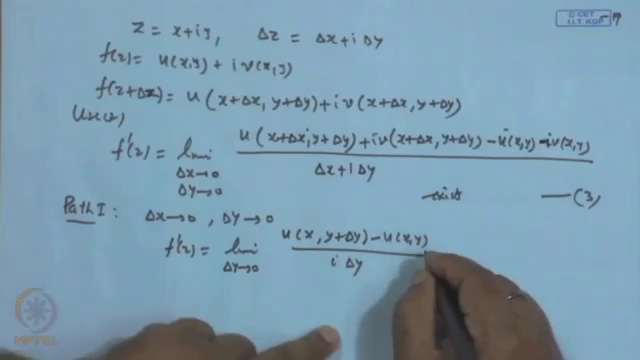 © CET
I.I.T. KGP
Z = x+iy, Δz = Δx+iΔy
f(z) = u(x,y) + i v(x,y)
f(z+Δz) = u(x+Δx, y+Δy)+i v(x+Δx, y+Δy)
Use(2)
f'(z) = lim Δx→0 Δy→0 u(x+Δx,y+Δy)+iv(x+Δx,y+Δy)-u(x,y)-iv(x,y) / Δx+iΔy
—(3)
Path I: Δx→0, Δy→0
f'(z) = lim Δy→0 u(x,y+Δy)-u(x,y) / i Δy
NPTEL